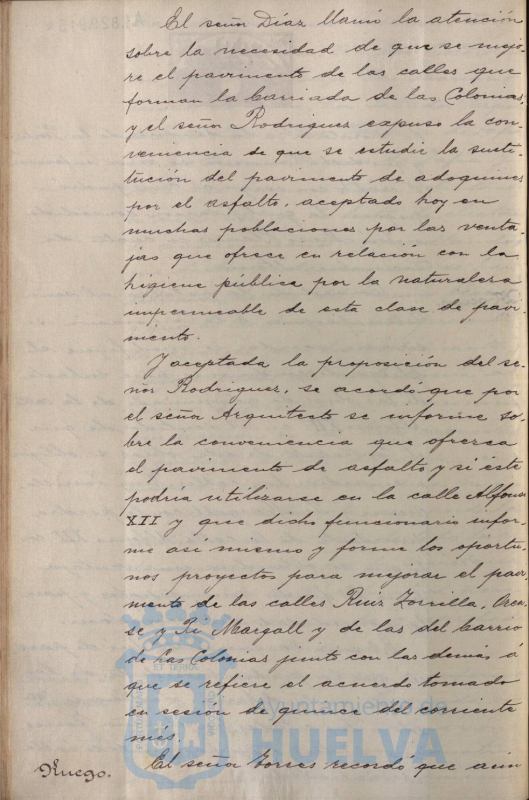 El señor Díaz llamó la atención
sobre la necesidad de que se mejo-
re el pavimento de las calles que
forman la barriada de las Colonias
y el señor Rodriguez expuso la con-
veniencia de que se estudie la susti-
tución del pavimento de adoquines
por el asfalto, aceptado hoy en
muchas poblaciones por las venta-
jas que ofrece en relación con la
higiene pública por la naturaleza
impermeable de esta clase de pavi-
mento.
Y aceptada la proposición del se-
ñor Rodriguez, se acordó que por
el señor Arquitecto se informe so-
bre la conveniencia que ofrezca
el pavimento de asfalto y si éste
podría utilizarse en la calle Alfonso
XII y que dicho funcionario infor-
me asi mismo y forme los oportu-
nos proyectos para mejorar el pavi-
mento de las calles Ruiz Zorrilla, Oren-
se y Pi Margall y de las del barrio
de las Colonias junto con las demás á
que se refiere el acuerdo tomado
en sesión de quince del corriente
més.
Ruego. El señor Torres recordó que aun
Ayuntamiento de
HUELVA